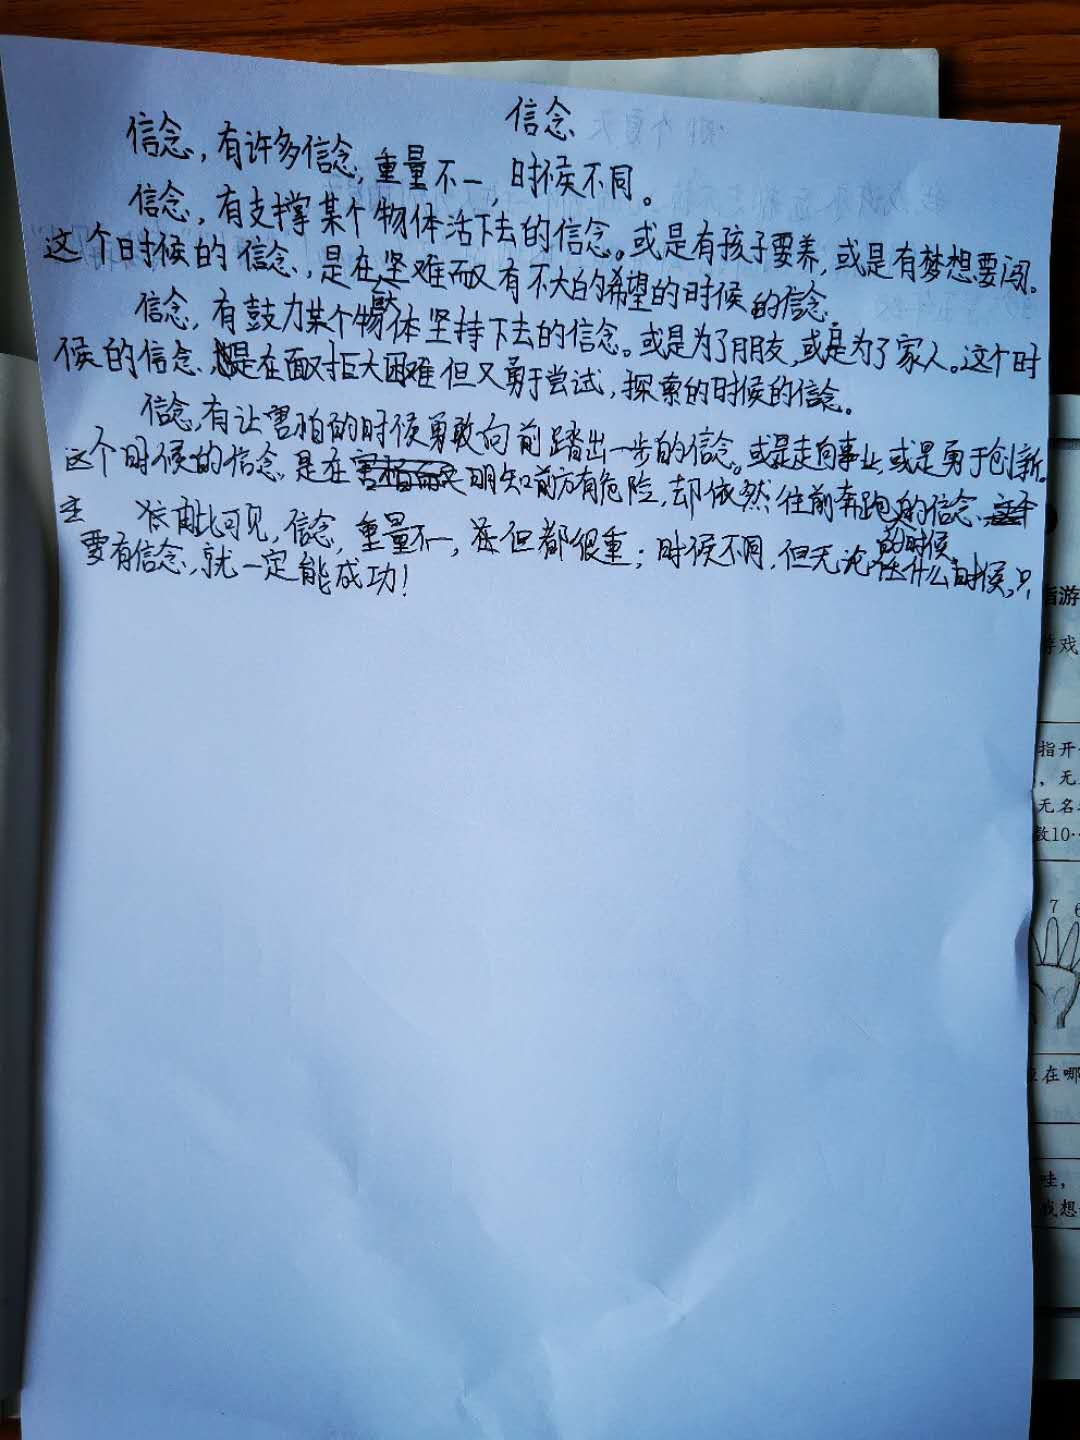 信念
信念,有许多信念,重量不一,时候不同。
信念,有支撑某个物体活下去的信念。或是有孩子要养,或是有梦想要闯。
这个时候的信念,是在坚难而又有不大的希望的时候的信念
信念,有鼓力某个物体坚持下去的信念。或是为了朋友,或是为了家人。这个时
候的信念,是在面对巨大困难但又勇于尝试,探索的时候的信念。
信念,有让害怕的时候勇敢向前踏出一步的信念。或是走向事业,或是勇于创新。
这个时候的信念,是在明知前方有危险,却依然往前奔跑的时候的信念。
由此可见,信念,重量不一,但都很重;时候不同,但无论在什么时候,只
要有信念,就一定能成功!
指游
游戏
指开
,无
无名
数10…
7 6
在哪
哇,
我想